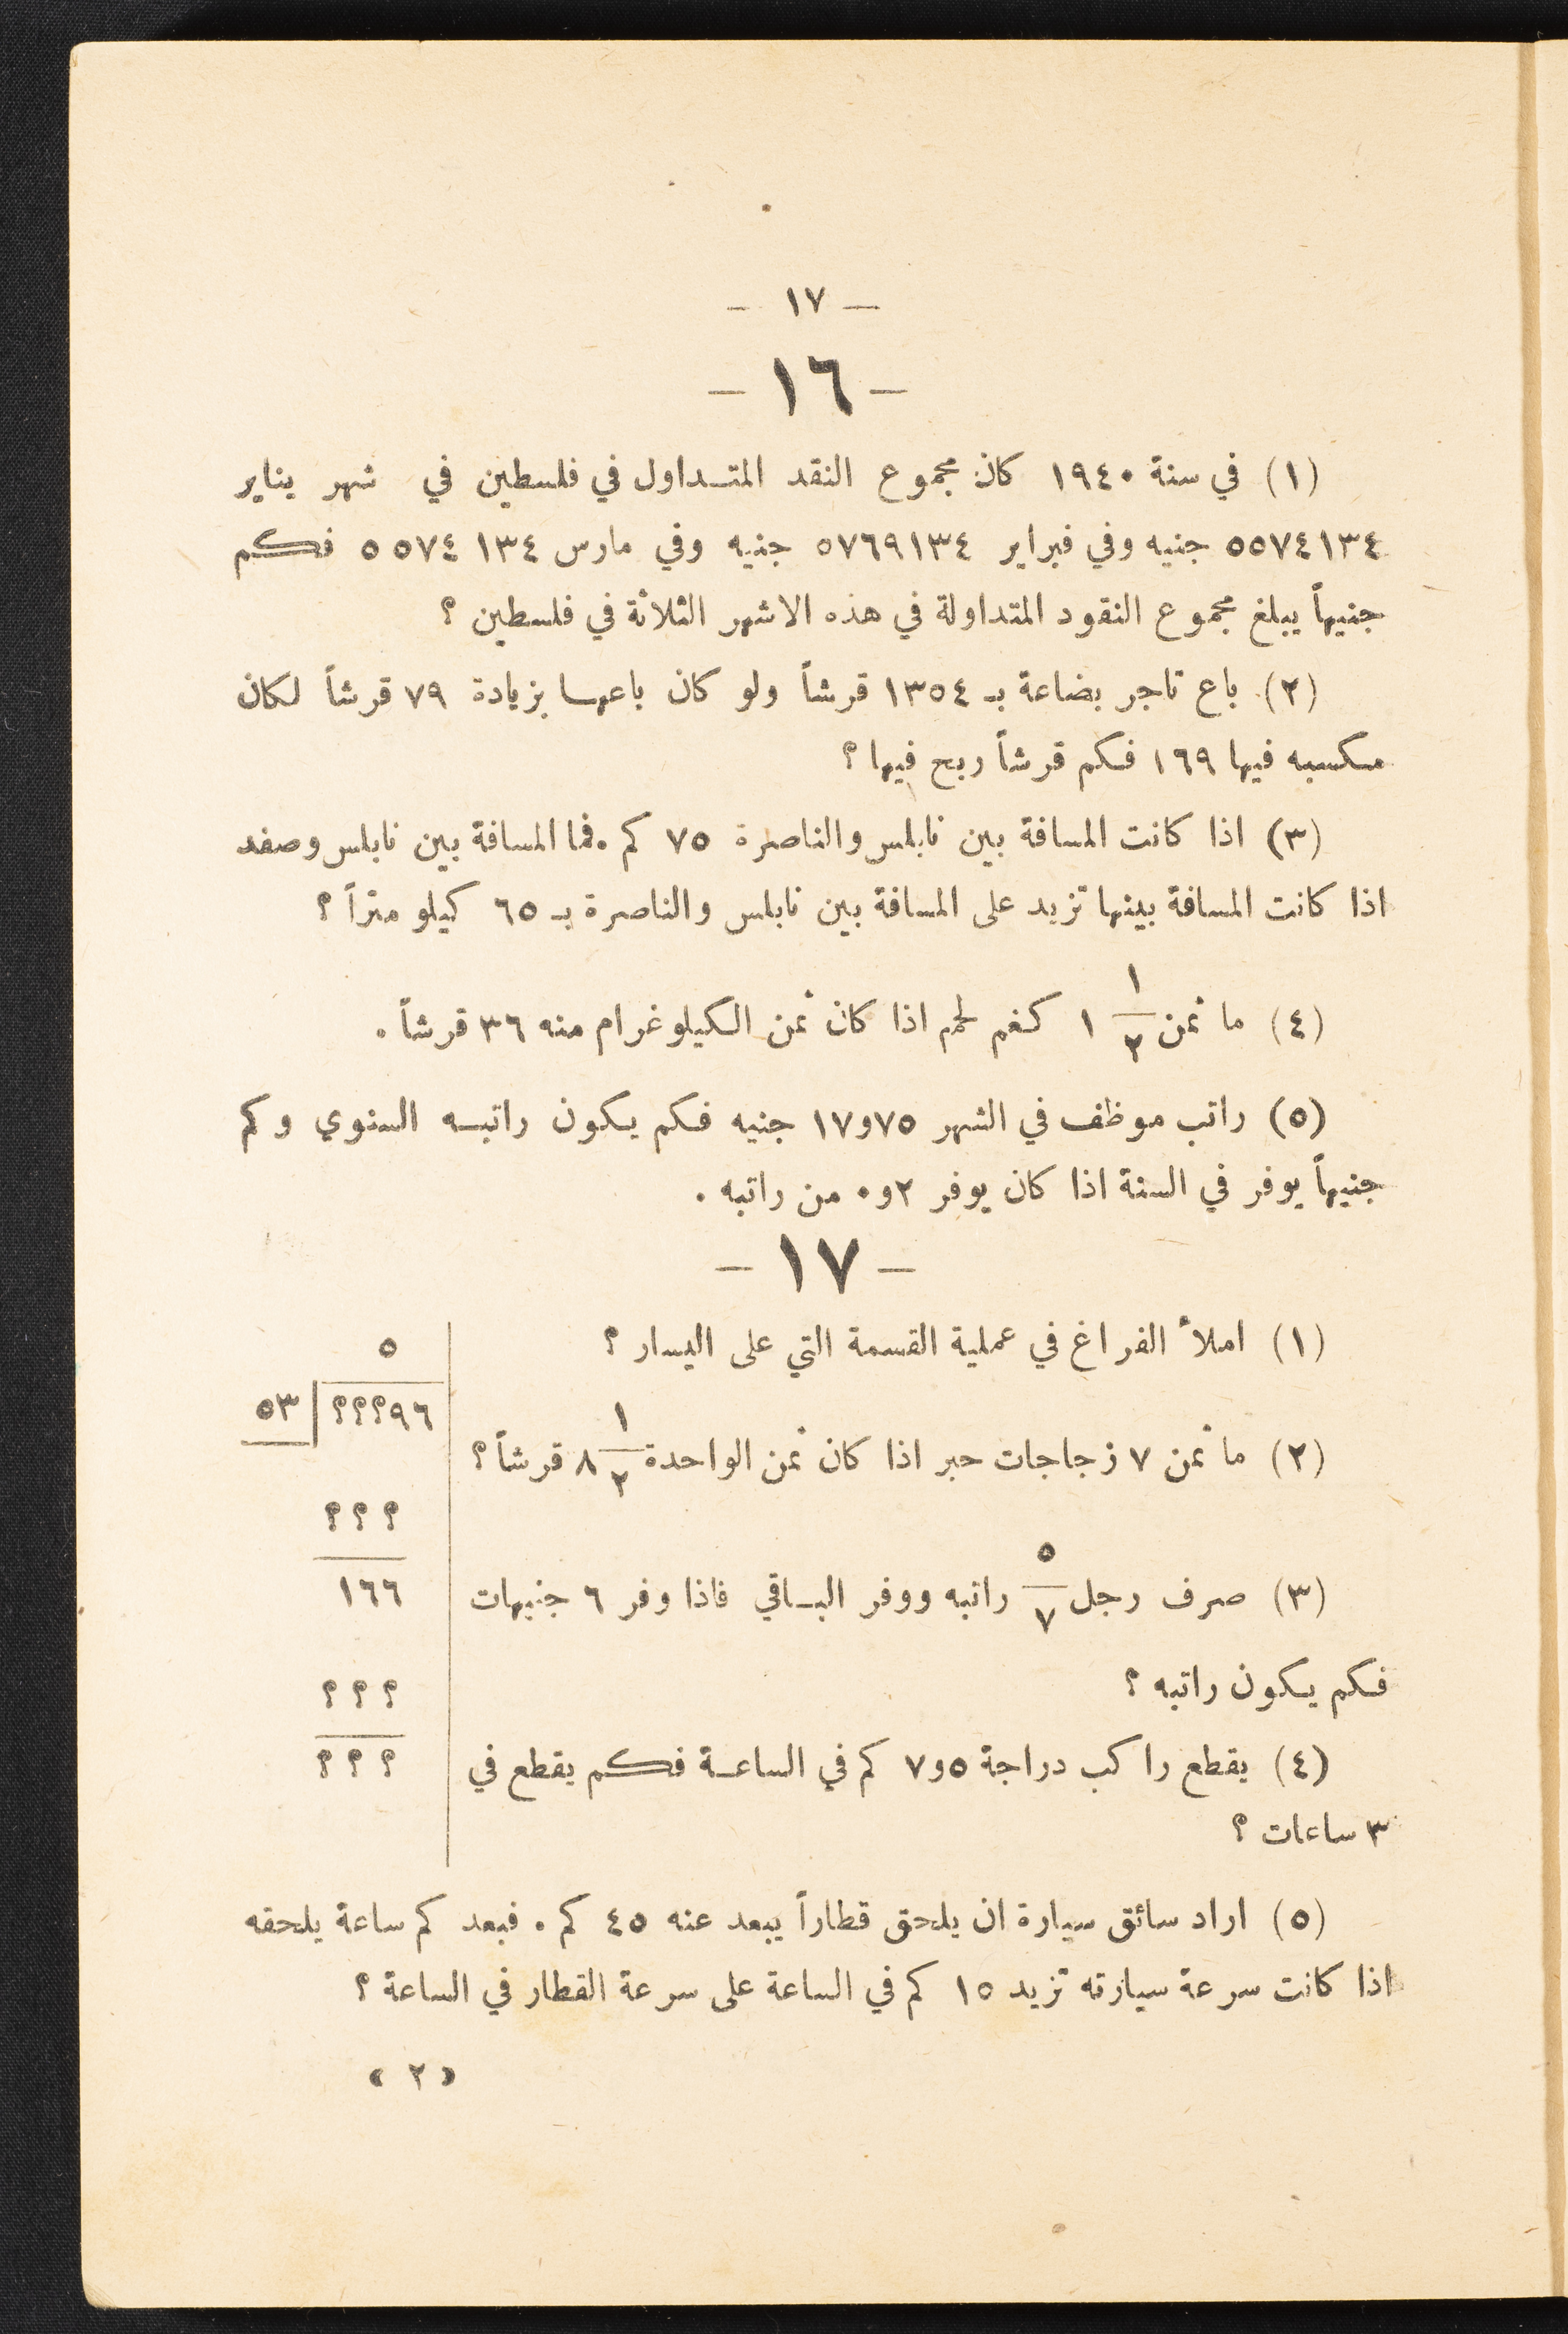 — ١٧ —
— ١٦ —
(١) في سنة ١٩٤٠ كان مجموع النقد المتداول في فلسطين في شهر يناير
٥٥٧٤١٣٤ جنيه وفي فبراير ٥٧٦٩١٣٤ جنيه وفي مارس ٥٥٧٤١٣٤ فكم
جنيهاً يبلغ مجموع النقود المتداولة في هذه الاشهر الثلاثة في فلسطين ؟
(٢) باع تاجر بضاعة بـ ١٣٥٤ قرشاً ولو كان باعها بزيادة ٧٩ قرشاً لكان
مكسبه فيها ١٦٩ فكم قرشاً ربح فيها ؟
(٣) اذا كانت المسافة بين نابلس والناصرة ٧٥ كم . فما المسافة بين نابلس وصفد
اذا كانت المسافة بينها تزيد على المسافة بين نابلس والناصرة بـ ٦٥ كيلو متراً ؟
(٤) ما ثمن ١ ١/٢ كغم لحم اذا كان ثمن الكيلوغرام منه ٣٦ قرشاً .
(٥) راتب موظف في الشهر ٧٥و١٧ جنيه فكم يكون راتبه السنوي وكم
جنيهاً يوفر في السنة اذا كان يوفر ٢و٠ من راتبه .
— ١٧ —
(١) املأ الفراغ في عملية القسمة التي على اليسار ؟
(٢) ما ثمن ٧ زجاجات حبر اذا كان ثمن الواحدة ٨ ١/٢ قرشاً ؟
(٣) صرف رجل ٥/٧ راتبه ووفر الباقي فاذا وفر ٦ جنيهات
فكم يكون راتبه ؟
(٤) يقطع راكب دراجة ٥و٧ كم في الساعة فكم يقطع في
٣ ساعات ؟
٥
؟؟؟٩٦ | ٥٣
؟ ؟ ؟
١٦٦
؟ ؟ ؟
؟ ؟ ؟
(٥) اراد سائق سيارة ان يلحق قطاراً يبعد عنه ٤٥ كم . فبعد كم ساعة يلحقه
اذا كانت سرعة سيارته تزيد ١٥ كم في الساعة على سرعة القطار في الساعة ؟
« ٢ »